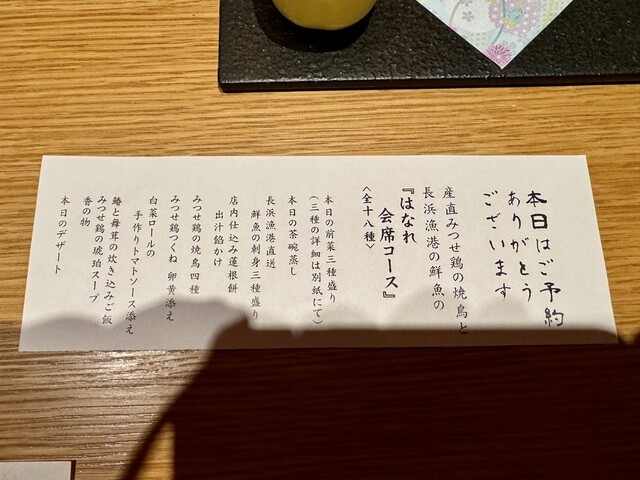 本日はご予約
ありがとう
ございます
産直みつせ鶏の焼鳥と
長浜漁港の鮮魚の
『はなれ
会席コース』
<全十八種>
本日の前菜三種盛り
(三種の詳細は別紙にて)
本日の茶碗蒸し
長浜漁港直送
鮮魚の刺身三種盛り
店内仕込み蓮根餅
出汁餡かけ
みつせ鶏の焼鳥四種
みつせ鶏つくね 卵黄添え
白菜ロールの
手作りトマトソース添え
鰆と舞茸の炊き込みご飯
みつせ鶏の琥珀スープ
香の物
本日のデザート